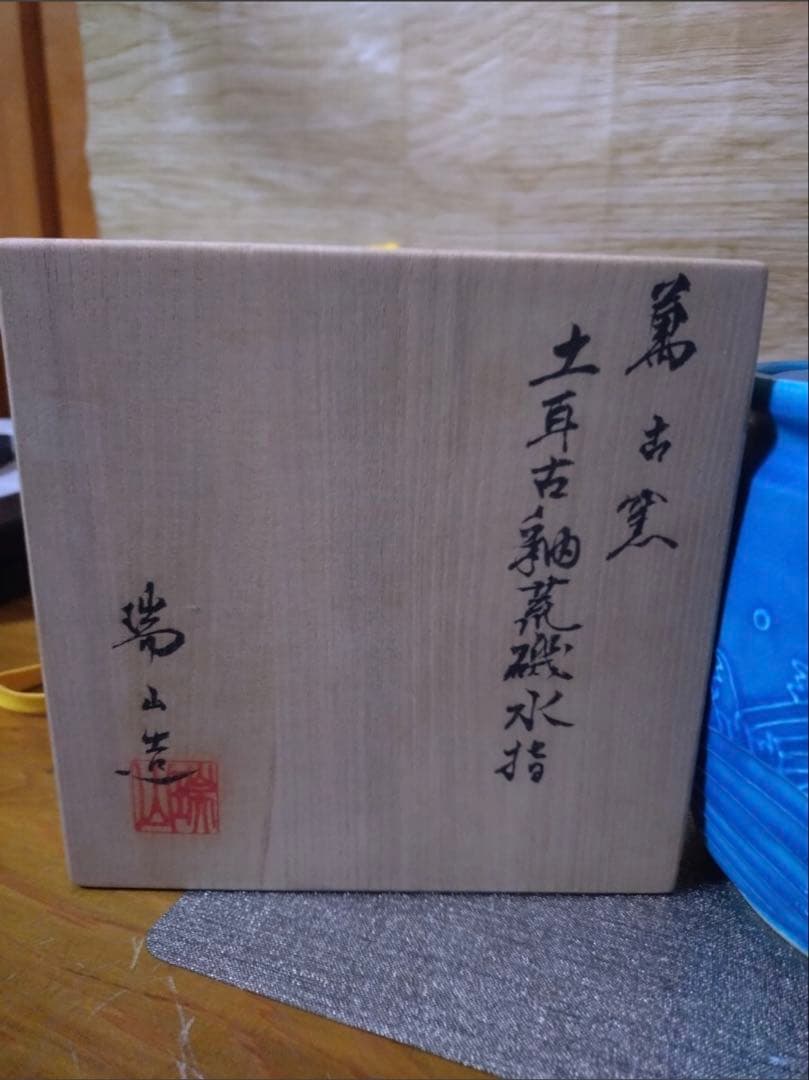 萬古窯
土耳古釉荒磯水指
瑞山造
瑞山